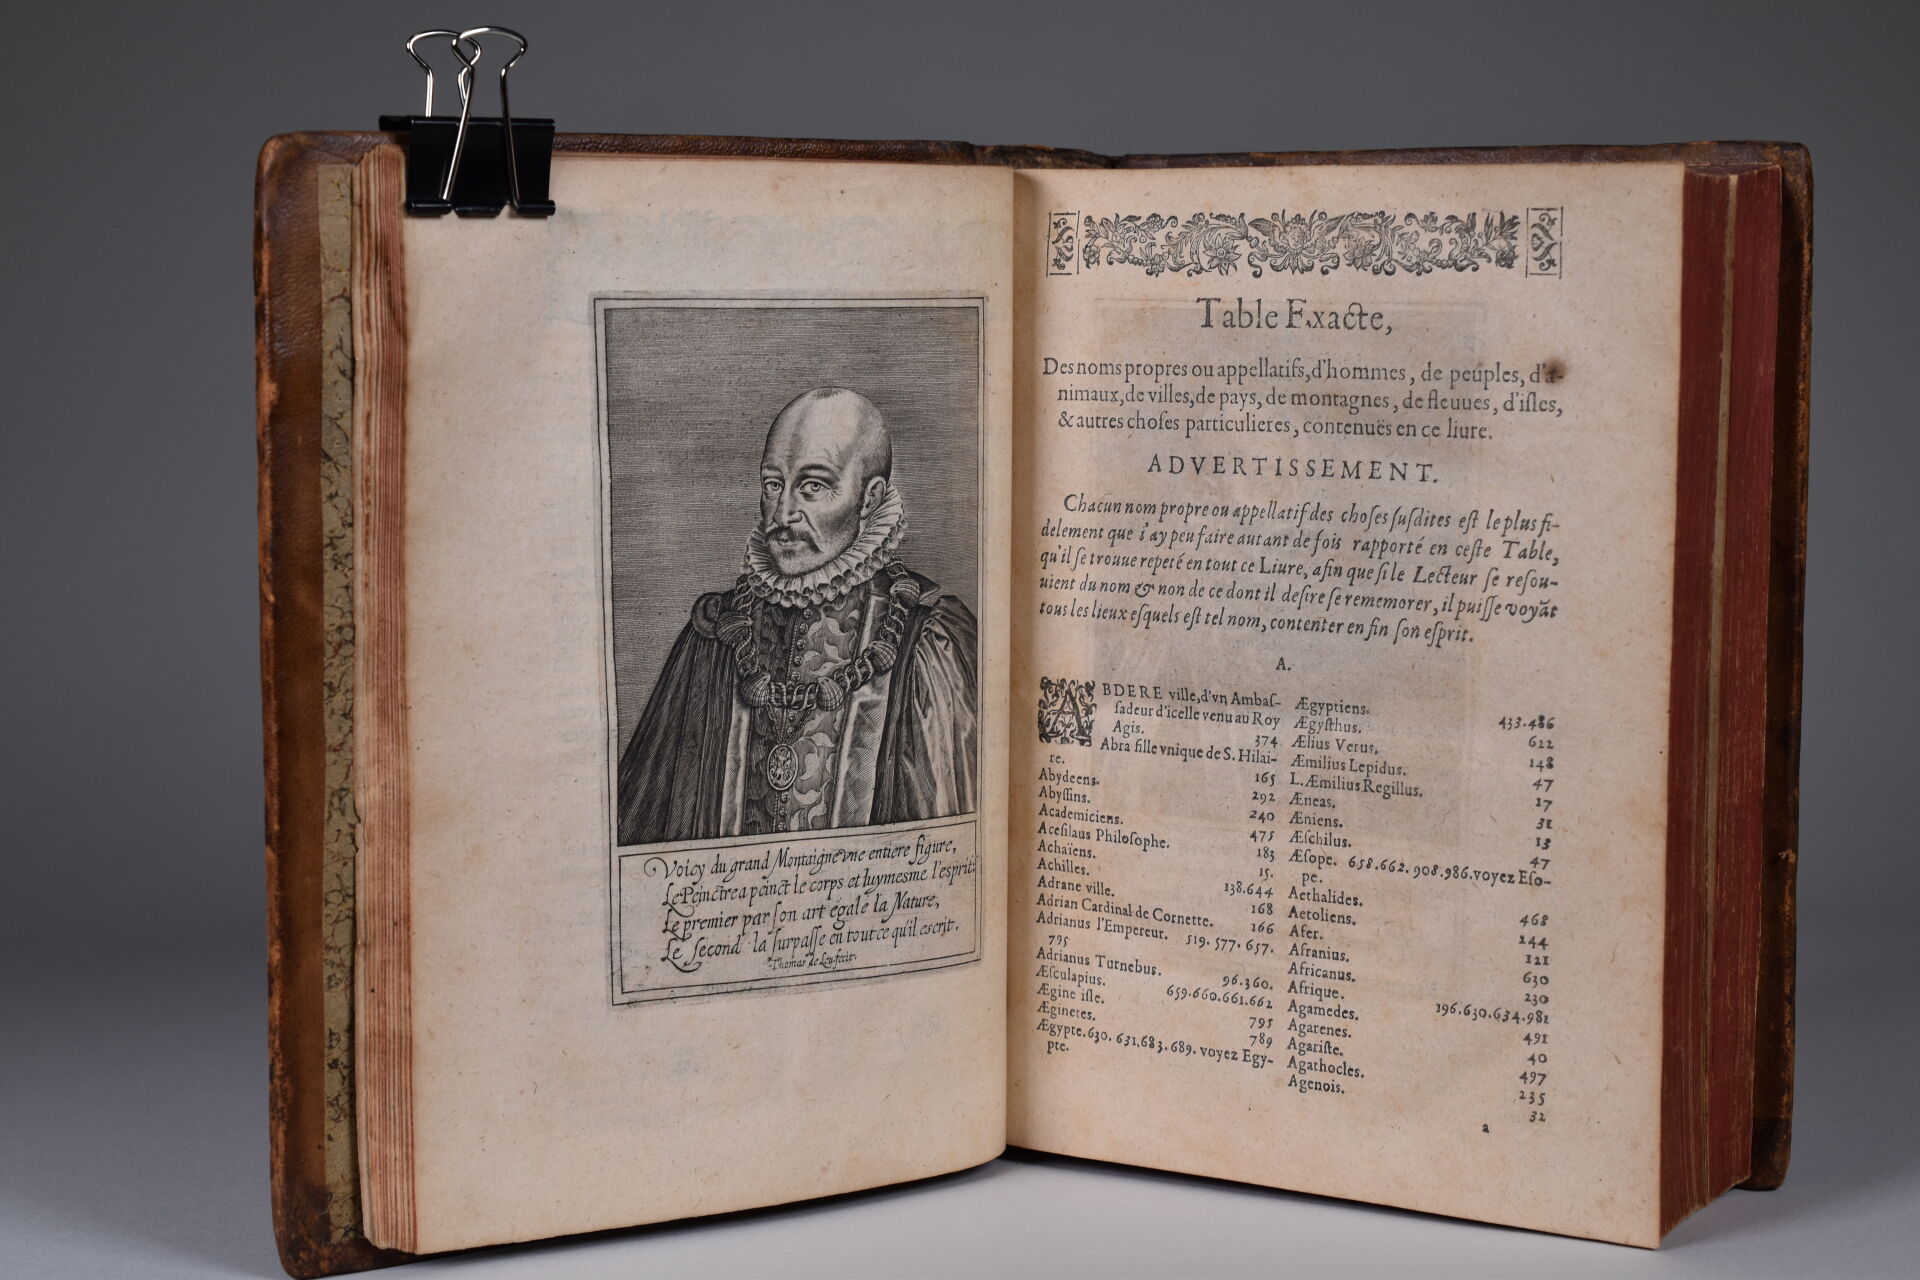 Voicy du grand Montaigne vne entiere figure,
Le Peinctre a peinct le corps et luymesme l'esprit:
Le premier par son art egale la Nature,
Le Second la surpasse en tout ce qu'il escrit.
Thomas de Leu fecit.
Table Exacte,
Des noms propres ou appellatifs, d'hommes, de peuples, d'a-
nimaux, de villes, de pays, de montagnes, de fleuues, d'iſles,
& autres choſes particulieres, contenuës en ce liure.
ADVERTISSEMENT.
Chacun nom propre ou appellatif des choſes ſuſdites eſt le plus fi-
delement que i'ay peu faire autant de fois rapporté en ceſte Table,
qu'il ſe trouue repeté en tout ce Liure, afin que ſi le Lecteur ſe reſou-
uient du nom & non de ce dont il deſire ſe rememorer, il puiſſe voyāt
tous les lieux eſquels eſt tel nom, contenter en fin ſon eſprit.
A.
ABDERE ville, d'vn Ambaſ-
ſadeur d'icelle venu au Roy
Agis. 374
Abra fille vnique de S. Hilai-
re. 165
Abydeens. 292
Abyſſins. 240
Academiciens. 475
Aceſilaus Philoſophe. 183
Achaïens. 15.
Achilles. 138.644
Adrane ville. 168
Adrian Cardinal de Cornette. 166
Adrianus l'Empereur. 519. 577. 657.
795
Adrianus Turnebus. 96.360.
Æſculapius. 659.660.661.662
Ægine iſle. 795
Æginetes. 789
Ægypte. 630. 631. 683. 689. voyez Egy-
pte.
Ægyptiens. 433.486
Ægyſthus. 622
Ælius Verus. 148
Æmilius Lepidus. 47
L. Æmilius Regillus. 17
Æneas. 31
Æniens. 13
Æſchilus. 47
Æſope. 658.662. 908.986. voyez Eſo-
pe.
Aethalides. 468
Aetoliens. 244
Afer. 121
Afranius. 630
Africanus. 230
Afrique. 196.630.634.981
Agamedes. 491
Agarenes. 40
Agariſte. 497
Agathocles. 235
Agenois. 32
a